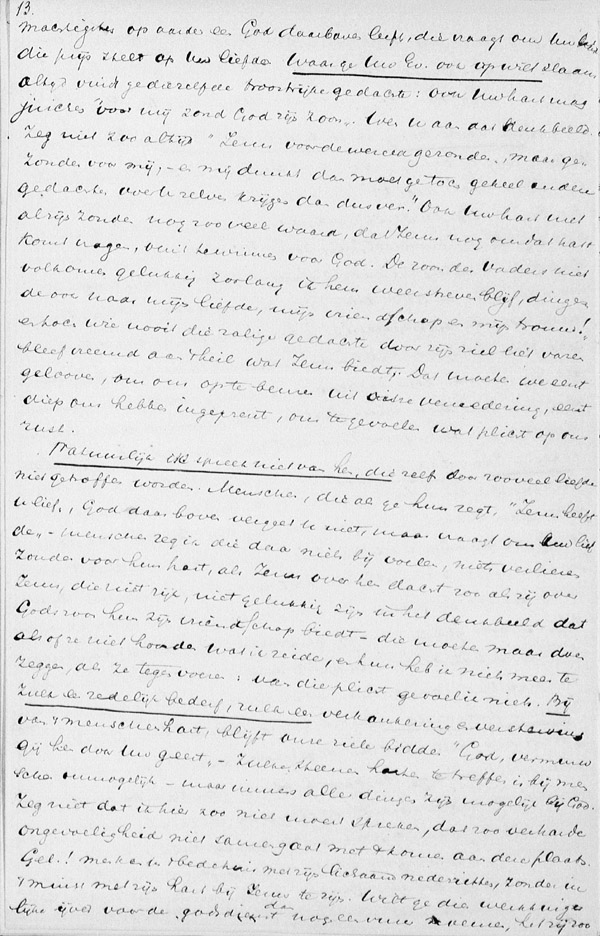 13.
machtigste op aarde een God daarboven leeft, die vraagt om uw liefde
die prijs stelt op uw liefde. Waar ge uw Ev. ook op wilt slaan
altijd vindt ge diezelfde troostrijke gedachte: ook uw hart mag
juichen "voor mij zond God zijn Zoon".
Zeg niet zoo altijd "Jezus voor de wereld gezonden", maar ge-
zonden voor mij, - en mij dunkt dan moet ge toch geheel andere
gedachten over u zelven krijgen dan dusver. Ook uw hart met
al zijn zonden nog zoo veel waard, dat Jezus nog om dat hart
komt vragen, om 't te winnen voor God. De zoon des vaders niet
volkomen gelukkig zoolang ik hem weerstreven blijf, dingen-
de ook naar mijn liefde, mijn vriendschap en mijn trouw!
en hoe wie nooit die zalige gedachte door zijn ziel liet varen
bleef vreemd aan 't heil wat Jezus biedt. Dat moeten we eerst
gelooven, om ons op te beuren uit onze vernedering, eerst
diep ons hebben ingeprent, om te gevoelen wat plicht op ons
rust.
Natuurlijk ik spreek niet van hen, die zelf door zooveel liefde
niet getroffen worden. Menschen, die als ge hun zegt, "Jezus heeft
u lief, God daarboven vergeet u niet, maar vraagt om uw lief-
de" - menschen zeg ik die daar niets bij voelen, niets verliezen
zouden voor hun hart, als Jezus over hen dacht zoo als zij over
Jezus, die niet rijk, niet gelukkig zijn in het denkbeeld dat
Gods zoon hun zijn vriendschap biedt - die moeten maar doen
alsof ze niet hoorden wat ik zeide, en hun heb ik niets meer te
zeggen, als ze tegenvoeren: van die plicht gevoel ik niets. Bij
zulk een zedelijk bederf, zulk een verkankering en
van 't menschenhart, blijft onze ziele bidden "God, vernieuw
gij hen door uw geest", - Zulke steenen harten te treffen is bij men-
schen onmogelijk - maar immers alle dingen zijn mogelijk bij God.
Zeg niet dat ik hier zoo niet moest spreken, dat zoo verharde
ongevoeligheid niet samengaat met 't komen aan deze plaats.
Gel.! men kan 't bedehuis met zijn lichaam nederzitten, zonder in
't minst met zijn hart bij Jezus te zijn. Wilt ge die
lijke ijver voor de godsdienst dan nog eens, het zij zoo